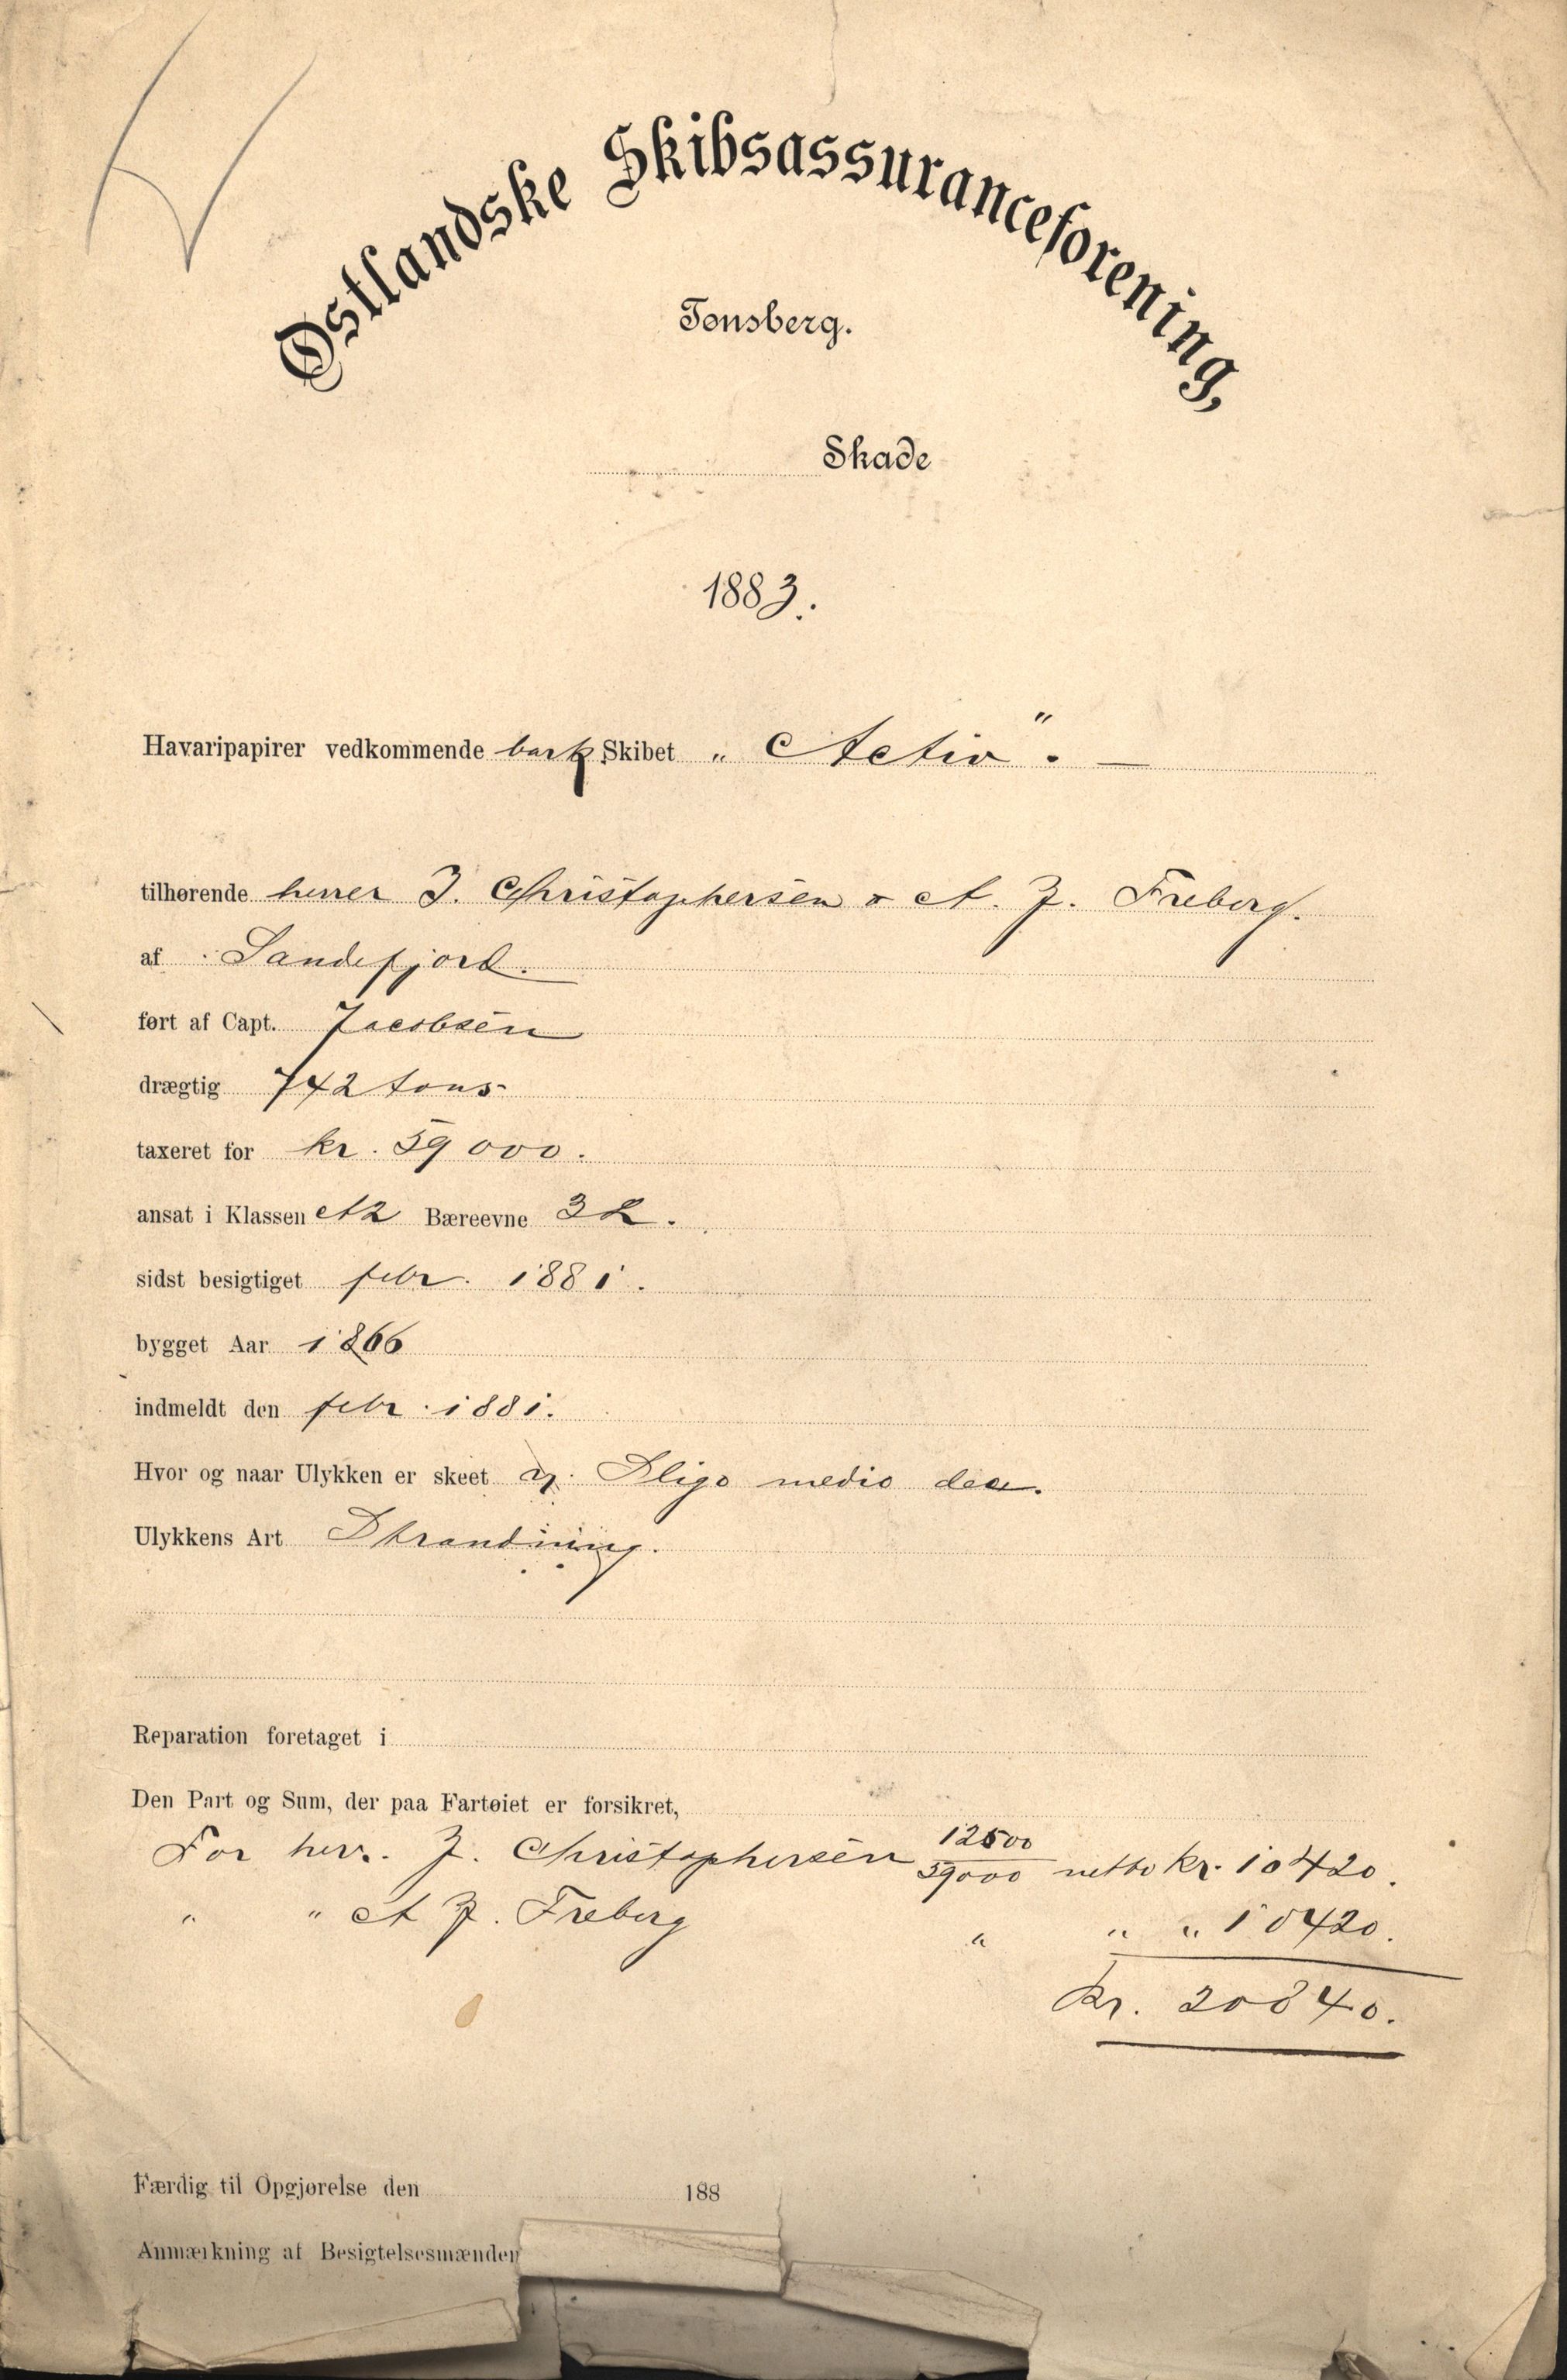 Østlandske Skibsassuranceforening,
Tønsberg.
Skade
1883.
Havaripapirer vedkommende bark Skibet „ Activ ".
tilhørende herrer J. Christophersen & A. J. Freberg.
af Sandefjord.
ført af Capt. Jacobsen
drægtig 742 tons
taxeret for kr. 59000.
ansat i Klassen A2 Bæreevne
sidst besigtiget febr. 1881.
bygget Aar 1866
indmeldt den febr. 1881.
Hvor og naar Ulykken er skeet Sligo medio
Ulykkens Art Strandning.
Reparation foretaget i
Den Part og Sum, der paa Fartøiet er forsikret,
For herr. J. Christophersen 12500/59000 netto kr. 10420.
" " A J. Freberg " " " 10420.
Kr. 20840.
Færdig til Opgjørelse den 188
Anmærkning af Besigtelsesmænden